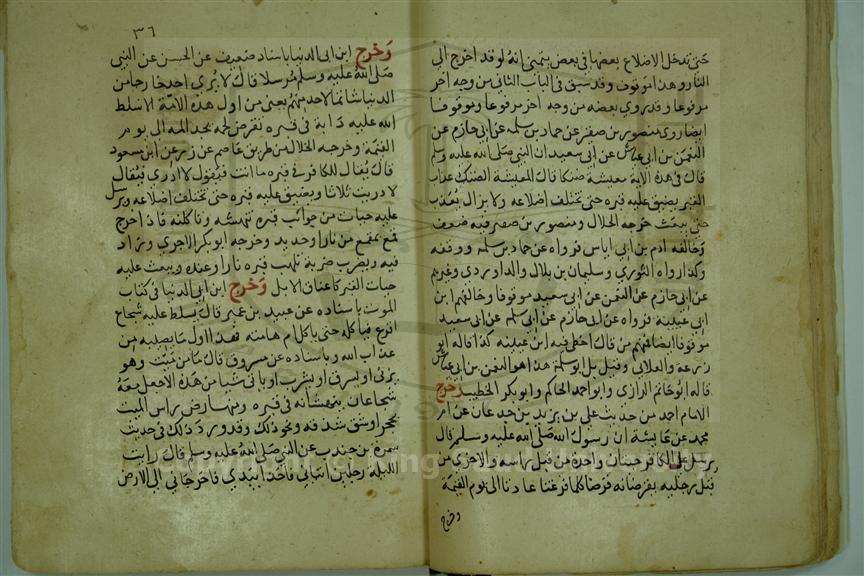 حتى تدخل الاضلاع بعضها في بعض يتمنى انه لو قد اخرج الى
النار وهذا موقوف وقد سبق في الباب الثاني من وجه اخر
مرفوعا وقد روي بعضه من وجه اخر مرفوعا وموقوفا
ايضا روى منصور بن صقر عن حماد بن سلمه عن ابي حازم عن
النعمن بن ابي عياش عن ابي سعيد ان النبي صلى الله عليه وسلم
قال في هذه الاية معيشة ضنكا قال المعيشة الضنك عذاب
القبر يضيق عليه قبره حتى تختلف اضلاعه ولا يزال يعذب
حتى يبعث خرجه الخلال ومنصور بن صقر فيه ضعف
وخالفه ادم بن ابي اياس فرواه عن حماد بن سلمه ووقفه
وكذا رواه الثوري وسليمان بن بلال والداوردي وغيرهم
عن ابي حازم عن النعمن عن ابي سعيد موقوفا وخالفهم ابن
ابي عيينة فرواه عن ابي حازم عن ابي سلمه عن ابي سعيد
موقوفا ايضا فمنهم من قال اخطى فيه ابن عيينة كذا قاله ابو
زرعة والعلابي وقيل بل ابو سلمة هذا هو النعمن بن ابي عياش
قاله ابو حاتم الرازي وابو احمد الحاكم وابو بكر الخطيب وخرج
الامام احمد من حديث علي بن يزيد بن جدعان عن ام
محمد عن عايشة ان رسول الله صلى الله عليه وسلم قال
يرسل على الكافر حيتان واحدة من قبل راسه والاخرى من
قبل رجليه يقرضانه قرضا كلما فرغتا عادتا الى يوم القيمة
وخرج
٣٦
وخرج ابن ابي الدنيا باسناد ضعيف عن الحسن عن النبي
صلى الله عليه وسلم مرسلا قال لا يرى احد خارجا من
الدنيا شاتما لاحد منهم يعني من اول هذه الامة الا سلط
الله عليه دابة في قبره تقرض لحمه يجد المه الى يوم
القيمة وخرجه الخلال من طريق عاصم عن زر عن ابن مسعود
قال يقال للكافر في قبره ما انت فيقول لا ادري فيقال
لا دريت ثلاثا ويضيق عليه قبره حتى تختلف اضلاعه ويرسل
عليه حيات من جوانب قبره تنهشه وتاكله فاذا اخرج
قمع بمقمع من نار او حديد وخرجه ابو بكر الاجري وزاد
فيه ويضرب ضربة تلهب قبره نارا وعنده ويبعث عليه
حيات القبر كاعناق الابل وخرج ابن ابي الدنيا في كتاب
الموت باسناده عن عبيد بن عمير قال يسلط عليه شجاع
اقرع فياكله حتى ياكل ام هامته فهذا اول ما يصيبه من
عذاب الله وباسناده عن مسروق قال ما من ميت وهو
يزني او يسرق او يشرب او ياتي شيا من هذه الا جعل معه
شجاعان ينهشانه في قبره رأس الميت
بحجر او شق شدقه ونحو ذلك وقد ورد ذلك في حديث
سمرة بن جندب عن النبي صلى الله عليه وسلم قال رايت
الليلة رجلين اتياني فاخذا بيدي فاخرجاني الى الارض